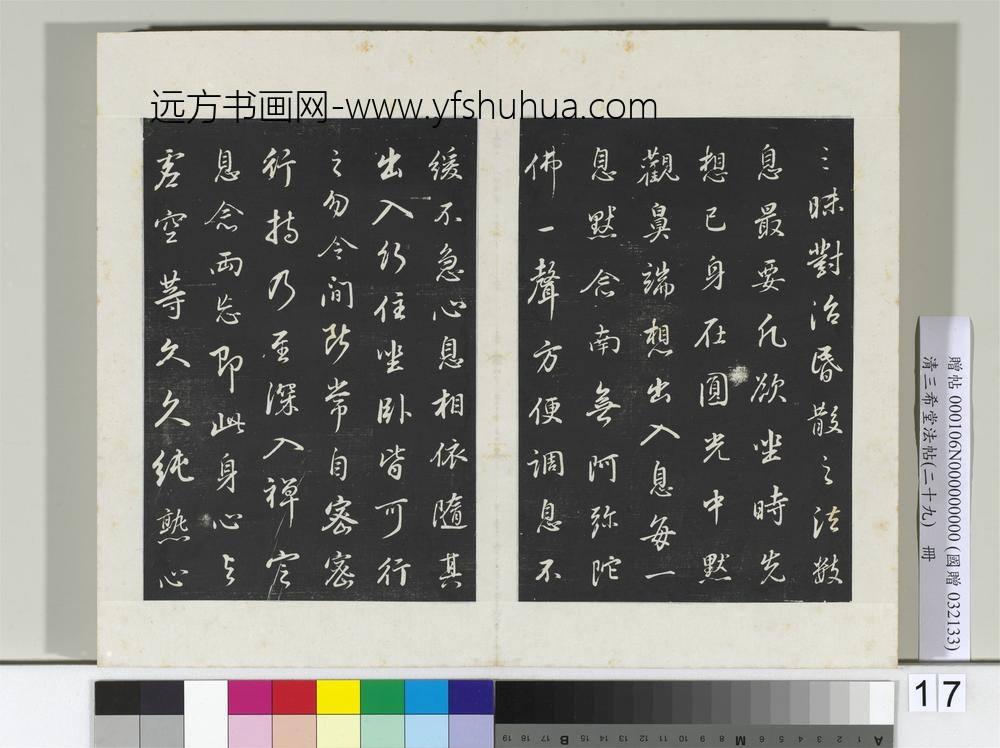 远方书画网-www.yfshuhua.com
三昧對治昏散之法數
息最要凡欲坐時先
想己身在圓光中默
觀鼻端想出入息每一
息默念南無阿彌陀
佛一聲方便調息不
緩不急心息相依隨其
出入行住坐臥皆可行
之勿令間斷常自密密
行持乃至深入禪定
息念兩忘即此身心與
虛空等久久純熟心
贈帖 000106N000000000 (國贈 032133)
清三希堂法帖(二十九) 冊
17
A 1 2 3 4 5 6 M 8 9 10 11 12 13 14 15 B 17 18 19